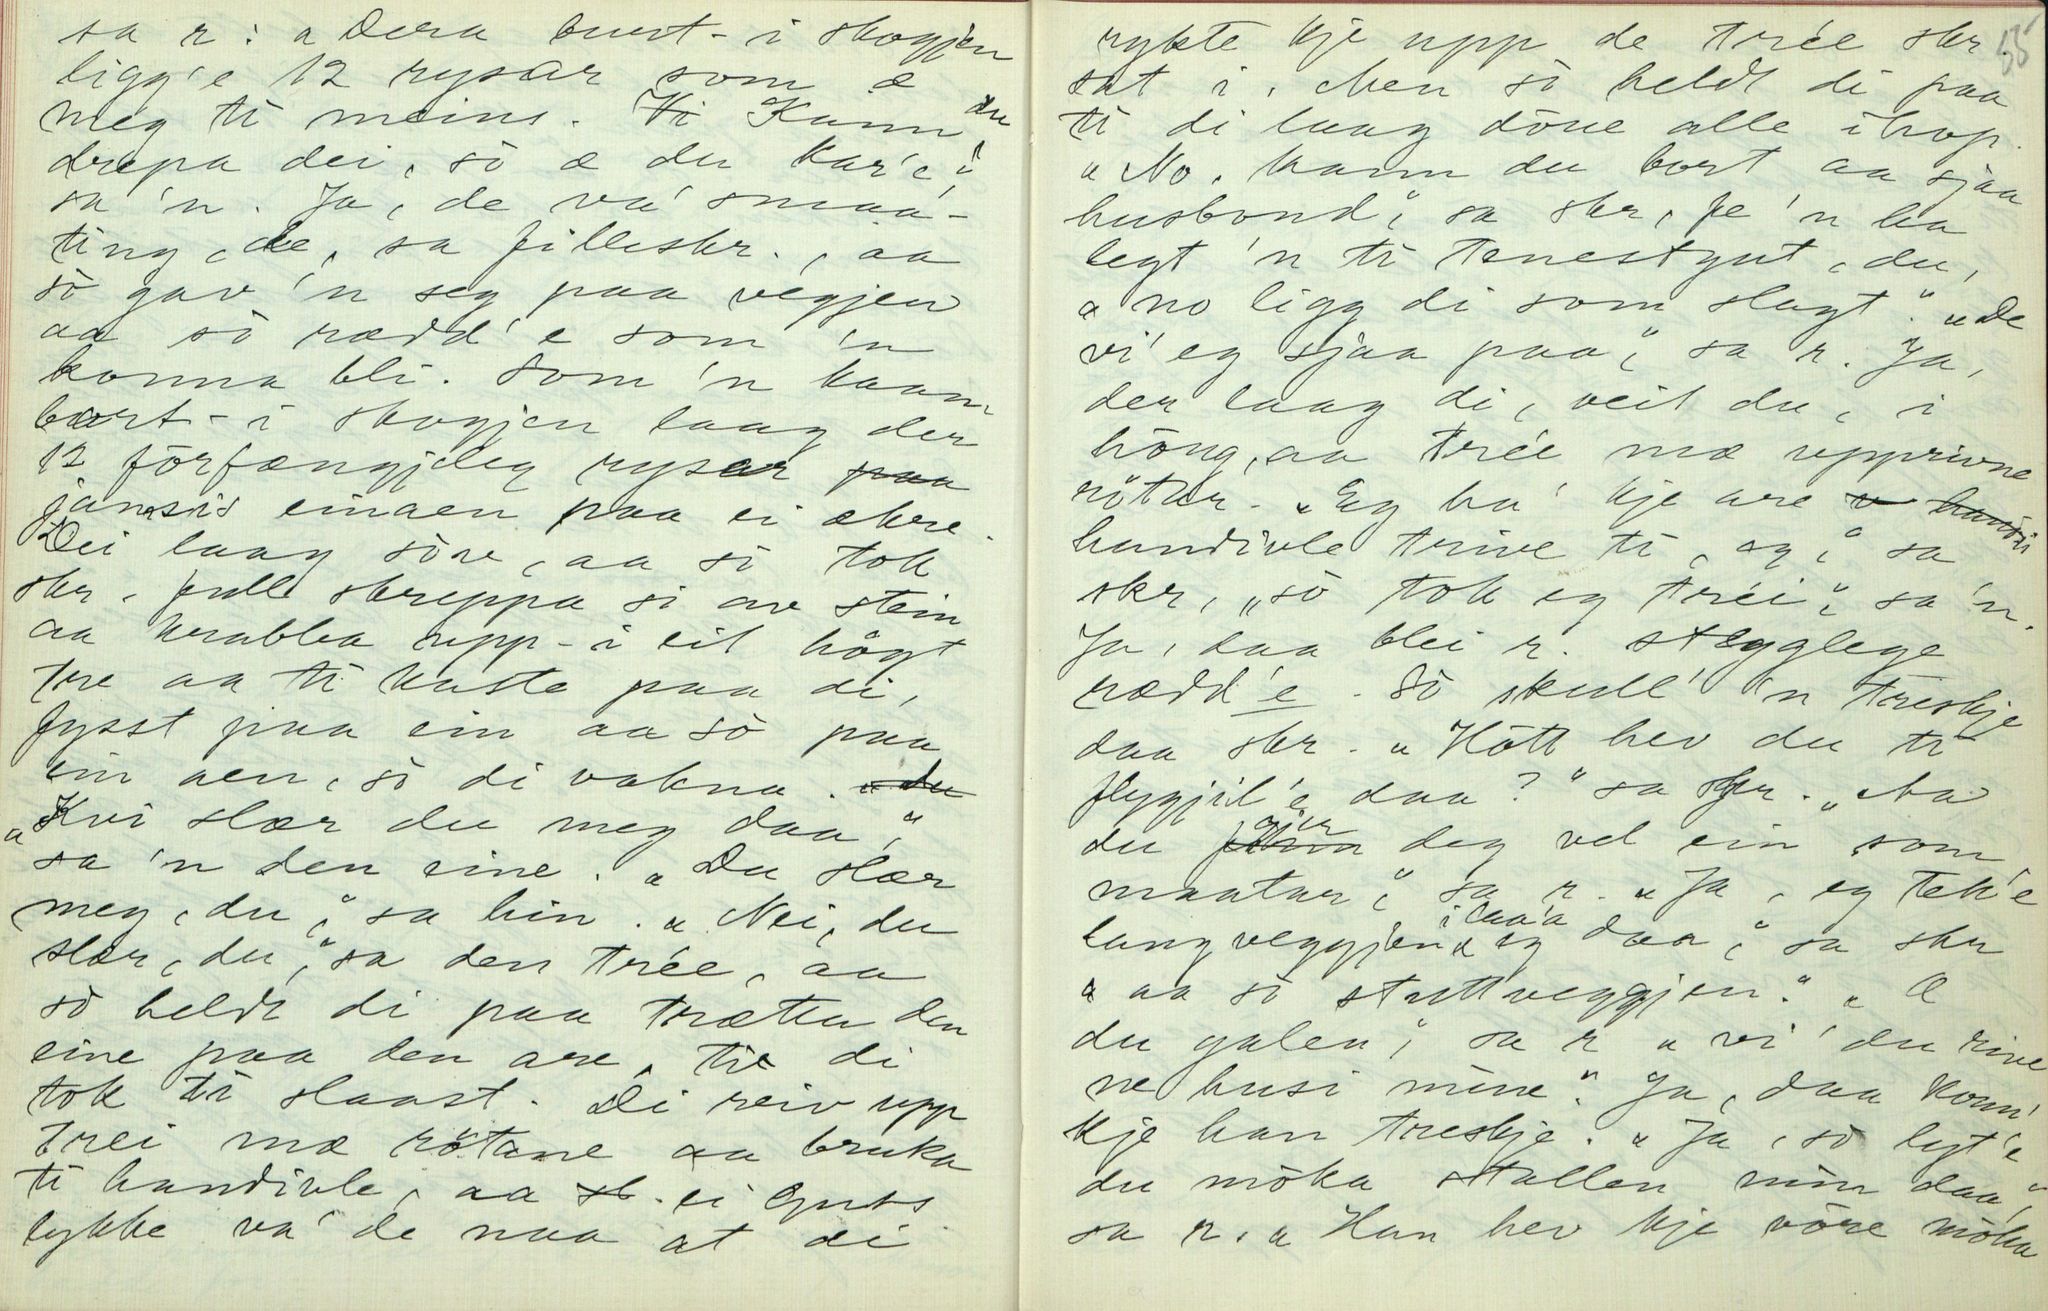 sa r: „Dera burt-i skogjen
ligg'e 12 rysar som æ
meg ti meins. Kann du
drepa dei, sò æ du kar'e",
sa 'n. Ja, de va' smaa-
ting, de, sa filleskr., aa
sò gav 'n seg paa vegjen
aa sò rædd'e som 'n
konna bli. Som 'n kaam
bort-i skogjen laag der
12 förfængjeleg rysar paa
jamsis einaen paa ei ækre.
Dei laag söve, aa sò tok
skr. full skreppa si av stein
aa krabba upp-i eit högt
tre aa ti kaste paa di,
fysst paa ein aa sò paa
ein aen, sò di vakna. „du
„Kvi slær du meg daa",
sa 'n den eine. „Du slær
meg, du", sa hin. „Nei, du
slær, du", sa den trée, aa
sò heldt di paa trætta den
eine paa den are, til di
tok ti slaast. Di reiv upp
trei mæ rötane aa bruka
ti handivle, aa sl. ei Guds
lykke va' de naa at di
55
rykte kje upp de trée skr.
sat i. Men sò heldt di paa
ti di laag döue alle ihop.
„No, kann du bort aa sjaa
husbond", sa skr, fe 'n ha
legt 'n ti tenestgut, du,
„no ligg di som slagt". „De
vi' eg sjaa paa", sa r. Ja,
der laag di, veit du, i
höng, aa trée mæ upprivne
rötar. „Eg ha' kje are
handivle trive ti, eg", sa
skr, „sò tok eg tréi", sa 'n.
Ja, daa blei r. stygglege
rædd'e. Sò skull' 'n treskje
daa skr. „Hòtt hev du ti
flygjil'e daa?" sa skr. „Aa
du gjer deg vel ein som
maatar", sa r. „Ja, eg tek'e
langveggjen i laa'a eg daa", sa skr
„aa sò stuttveggjen." „Æ
du galen", sa r „vi' du rive
ne husi mine". Ja, daa konn'
kje han treskje. „Ja, sò lyt'e
du möka stallen min daa",
sa r. „Han hev kje vöre möka